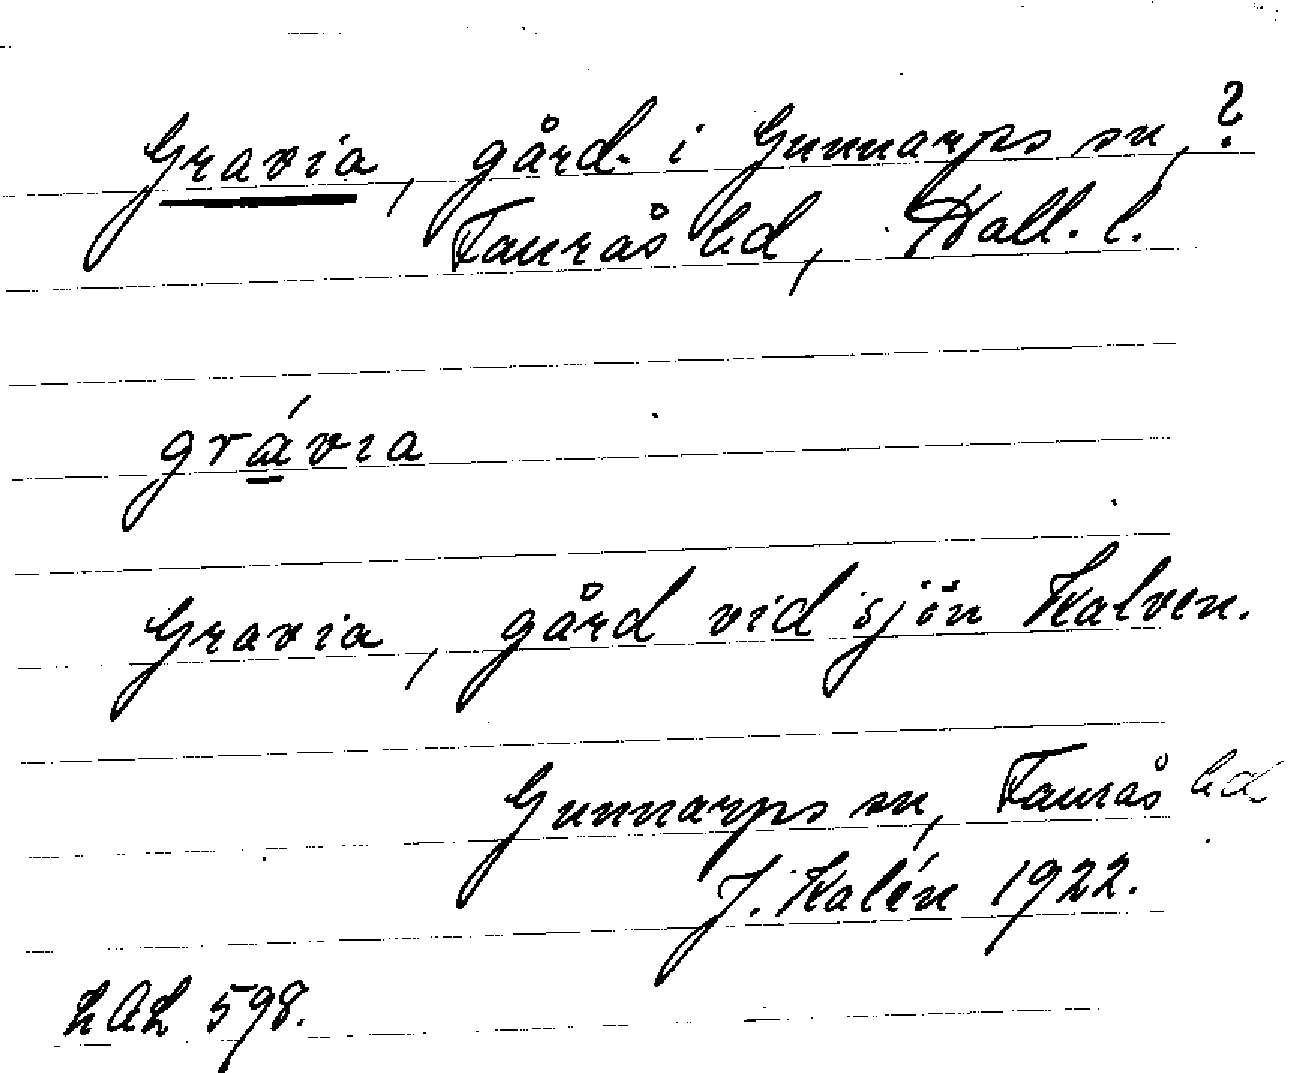 Gravia, gård i Gunnarps sn, ?
Faurås hd, Hall. l.
grávıa
Gravia, gård vid sjön Kalven.
Gunnarps sn, Faurås hd
J. Kalén 1922.
LAL 598.